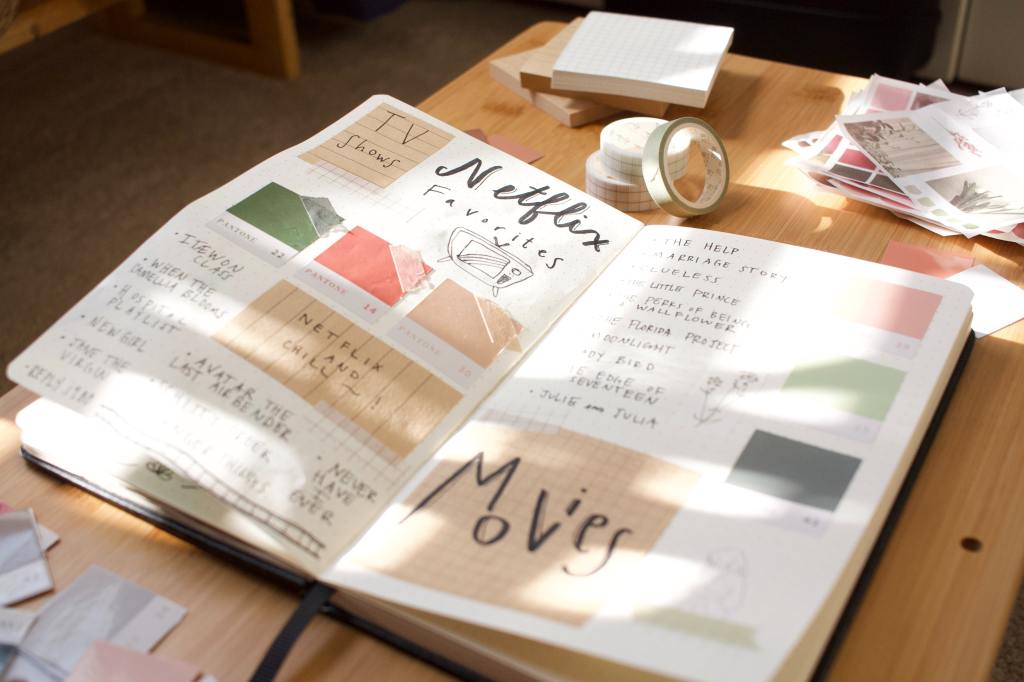 TV
Shows
Netflix
Favorites
PANTONE
22
PANTONE
14
PANTONE
30
NETFLIX
AND
CHILL
!
• ITEWON
CLASS
• WHEN THE
CAMELLIA BLOOMS
• HOSPITAL
PLAYLIST
• NEW GIRL
• JANE THE
VIRGIN
• REPLY
• AVATAR THE
LAST AIRBENDER
THINGS
• NEVER
HAVE I
EVER
• THE HELP
• MARRIAGE STORY
• CLUELESS
• THE LITTLE PRINCE
THE PERKS OF BEING
WALLFLOWER
THE FLORIDA PROJECT
MOONLIGHT
DY BIRD
E EDGE OF
SEVENTEEN
• JULIE and JULIA
Movies